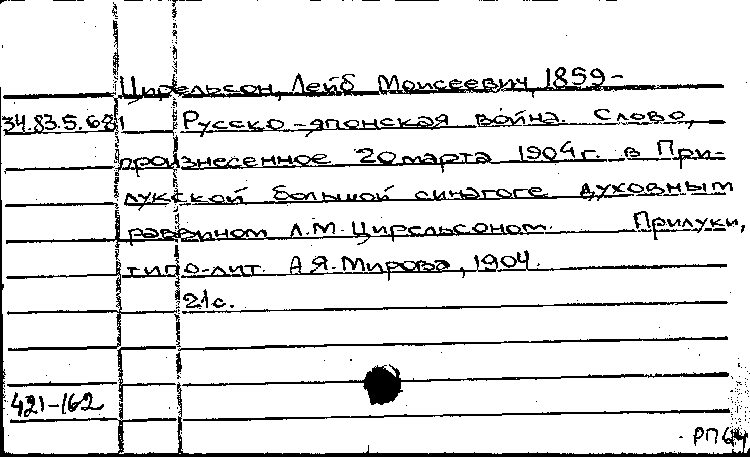 Цирельсон, Лейб Моисеевич, 1859-
34.83.5.681 Русско-японская война. Слово,
произнесенное 20 марта 1904 г. в При-
лукской большой синагоге духовным
раввином Л.М. Цирельсоном. Прилуки,
типо-лит. А.Я. Мирова, 1904.
21 с.
421-162